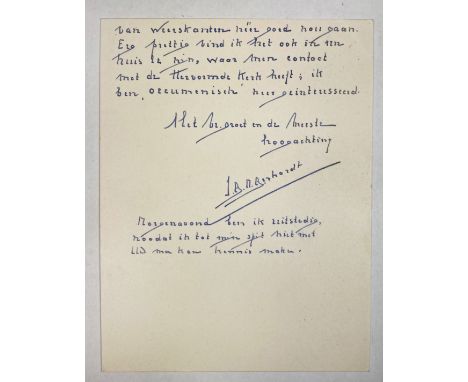 van weerskanten hier goed zou gaan.
Erg prettig vind ik het ook in een
huis te zijn, waar men contact
met de Hervormde Kerk heeft; ik
ben "oecumenisch" zeer geïnteresseerd.
Met br. groet en de meeste
hoogachting
J.B.M. Bernhardt
Morgenavond ben ik uitstedig,
zoodat ik tot mijn spijt niet met
Uld ma kan kennis maken.